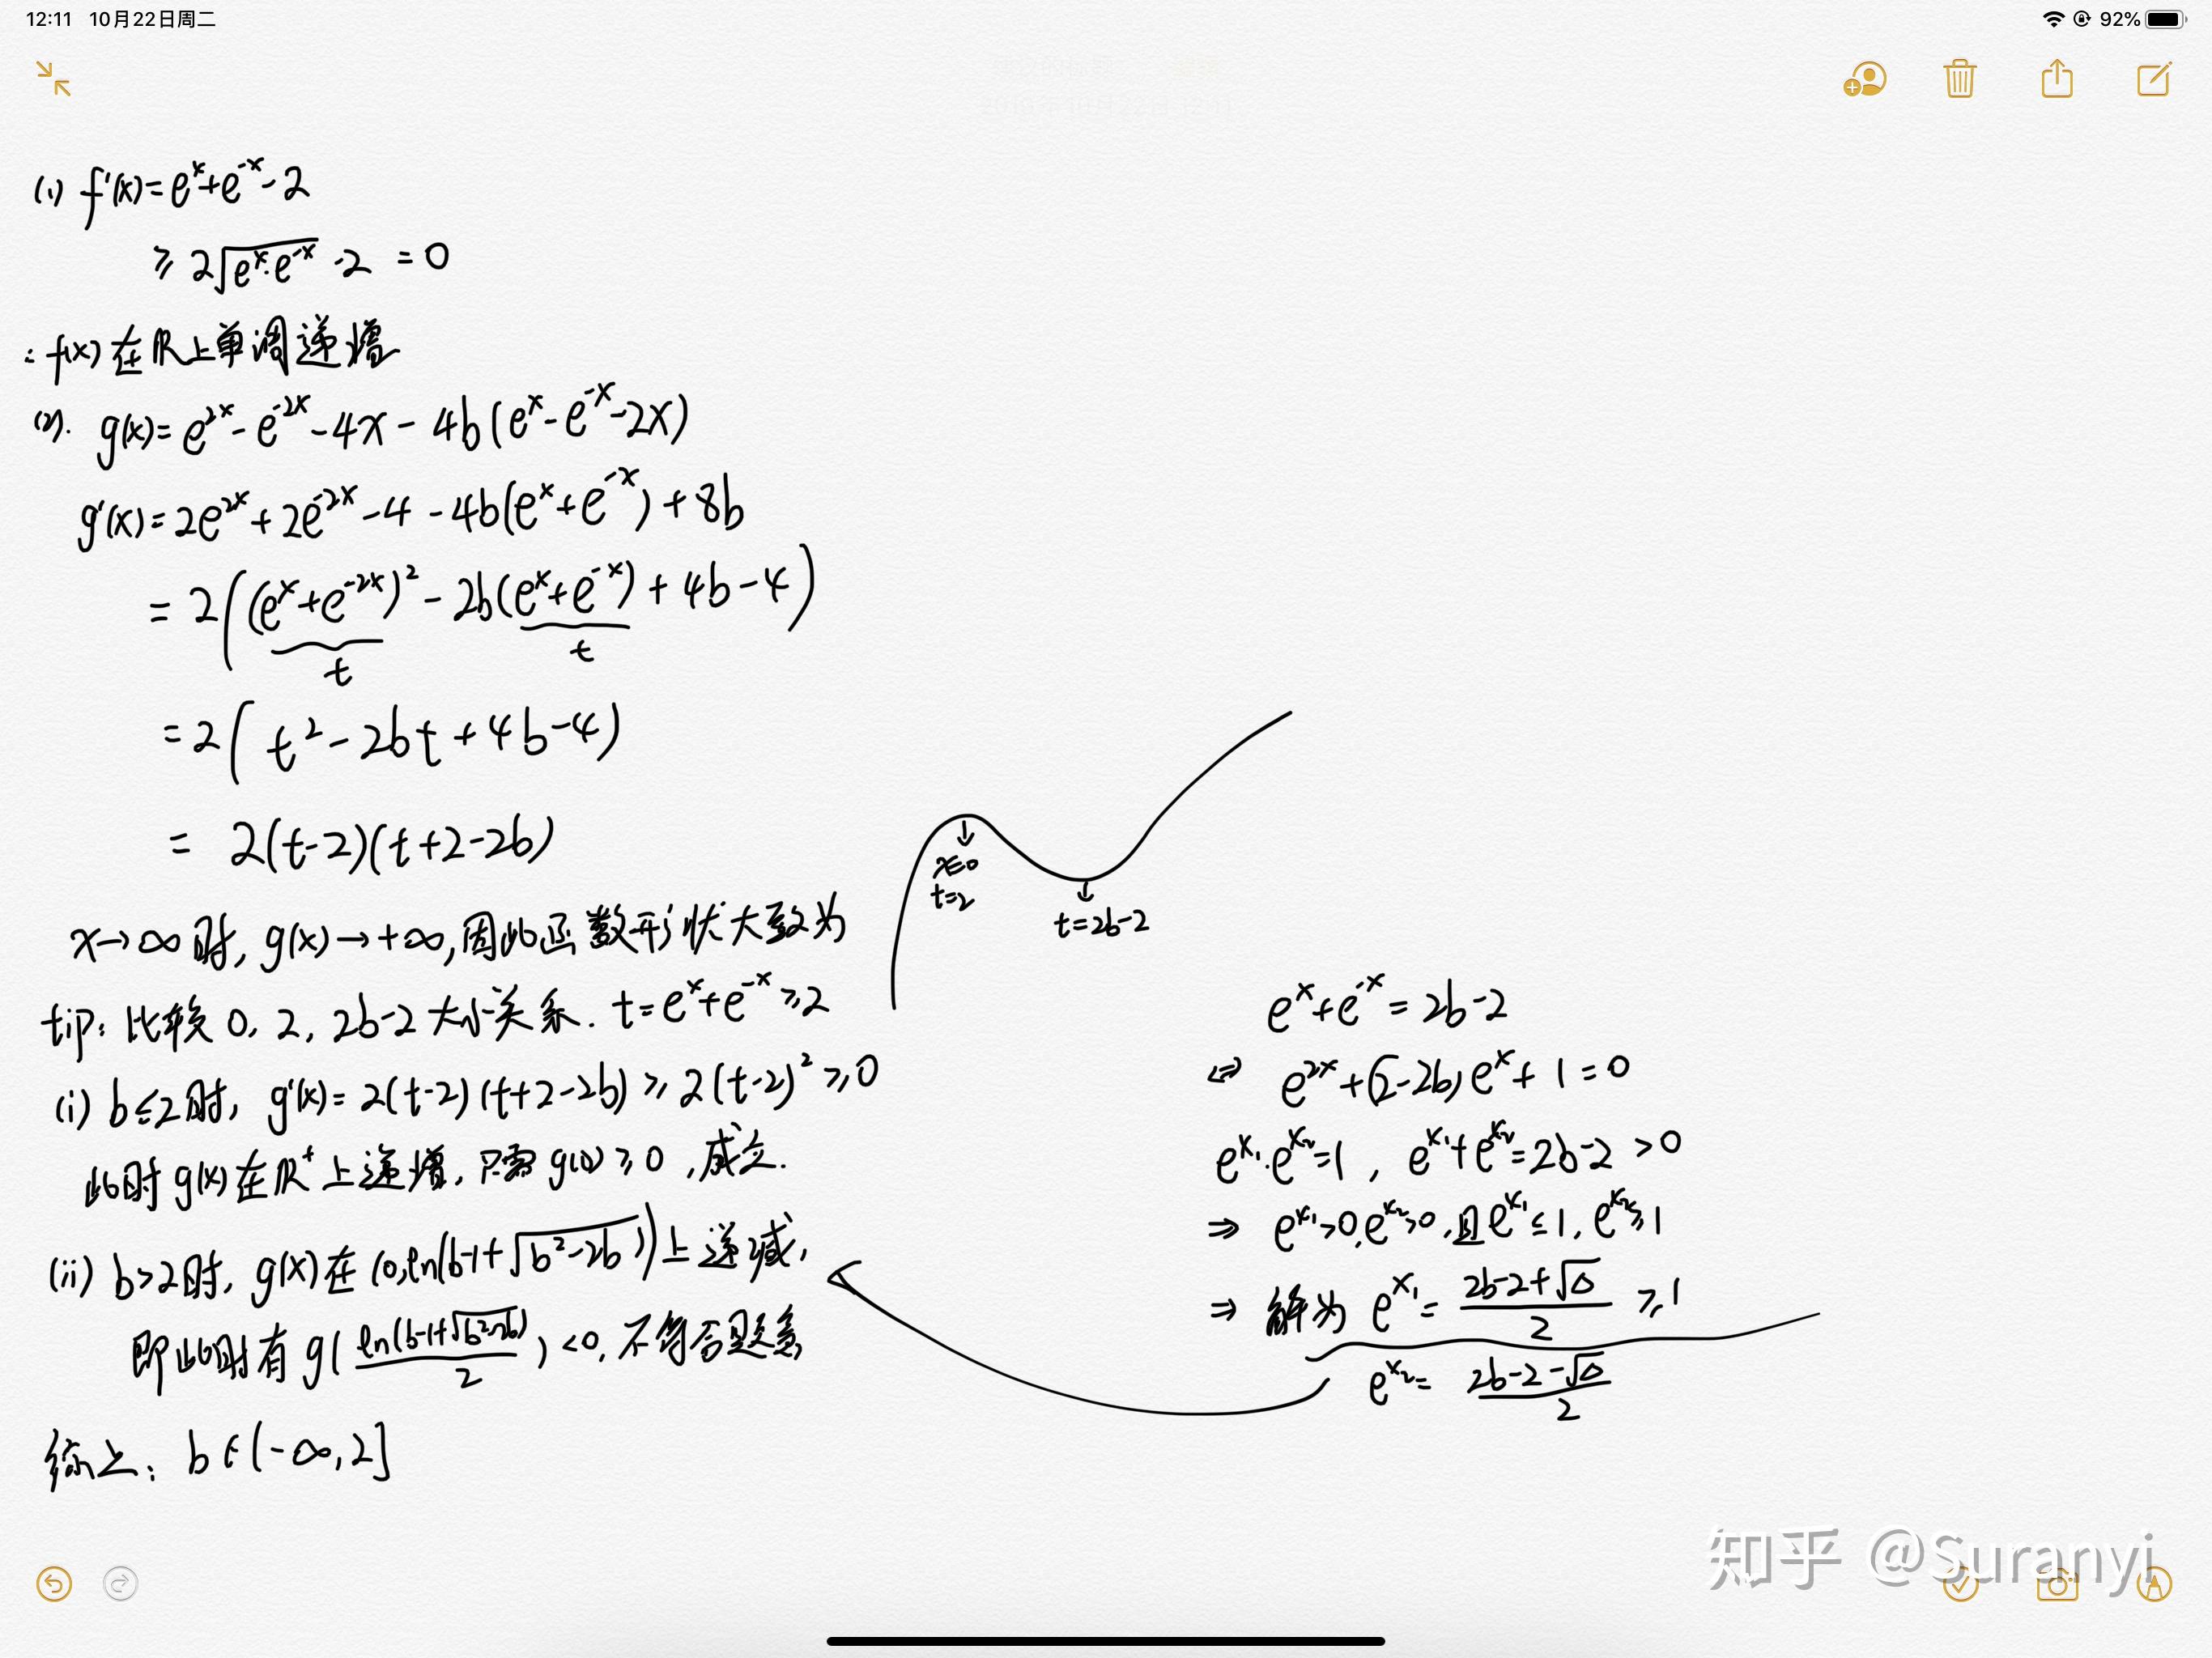 12:11 10月22日周二
92%
(1) f'(x)=eˣ+e⁻ˣ-2
≥ 2√(eˣ·e⁻ˣ) -2 =0
∴ f(x)在ℝ上单调递增
(2). g(x)=e²ˣ-e⁻²ˣ-4x-4b(eˣ-e⁻ˣ-2x)
g'(x)=2e²ˣ+2e⁻²ˣ-4-4b(eˣ+e⁻ˣ)+8b
=2((eˣ+e⁻²ˣ)²-2b(eˣ+e⁻ˣ)+4b-4)
t t
=2(t²-2bt+4b-4)
= 2(t-2)(t+2-2b)
x→∞时, g(x)→+∞,因此函数形状大致为
x=0
t=2
t=2b-2
tip: 比较 0, 2, 2b-2 大小关系. t=eˣ+e⁻ˣ≥2
(i) b≤2时, g'(x)=2(t-2)(t+2-2b)≥2(t-2)²≥0
此时g(x)在ℝ⁺上递增, 只需g(0)≥0,成立.
(ii) b>2时, g(x)在(0,ln(b-1+√(b²-2b)))上递减,
即此时有g(ln(b-1+√(b²-2b))/2)<0,不符合题意
综上: b∈(-∞,2]
eˣ+e⁻ˣ=2b-2
⇔ e²ˣ+(2-2b)eˣ+1=0
eˣ¹·eˣ²=1, eˣ¹+eˣ²=2b-2>0
⇒ eˣ¹>0,eˣ²>0,且eˣ¹≤1,eˣ²≥1
⇒ 解为 eˣ¹=(2b-2+√Δ)/2 ≥1
eˣ²=(2b-2-√Δ)/2
知乎 @Suranyi